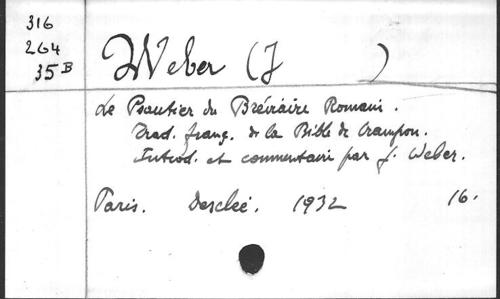 316
264
35 B
Weber (J )
Le Psautier du Bréviaire Romain.
Trad. franç. de la Bible de Crampon.
Introd. et commentaire par J. Weber.
Paris. Desclée. 1932 16.